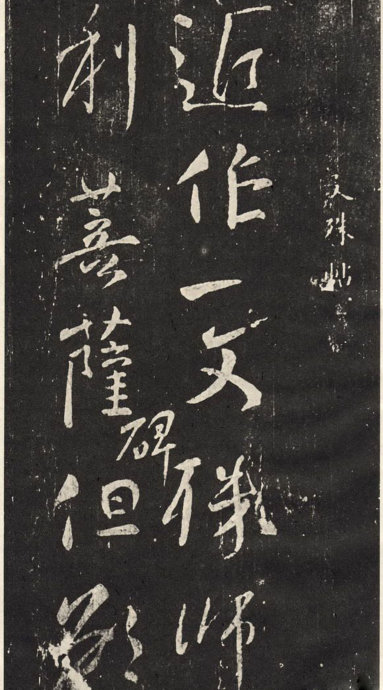 文殊帖
近作一文殊师
利菩薩但欲
碑